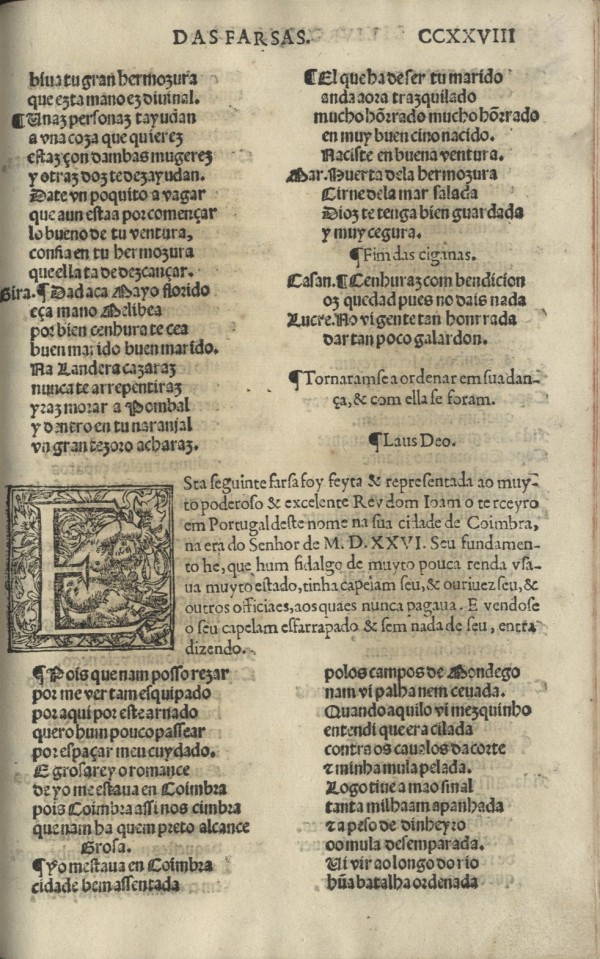 DAS FARSAS. CCXXVIII
biua tu gran hermozura
que ezta mano ez diuinal.
¶Unaz personaz tayudan
a vna coza que quierez
estaz çon dambas mugerez
y otraz doz te dezayudan.
Date vn poquito a vagar
que aun estaa por començar
lo bueno de tu ventura,
confia en tu hermozura
que ella ta de dezcançar.
Gira.¶Dad aca Mayo florido
eça mano Melibea
por bien cenhura te cea
buen marido buen marido.
Na Landera cazaraz
nunca te arrepentiraz
yraz morar a Pombal
y dentro en tu naranjal
vn gran tezoro acharaz.
¶El que ha de ser tu marido
anda aora trazquilado
mucho hõrrado mucho hõrrado
en muy buen cino nacido.
Naciste en buena ventura.
Mar.Huerta de la hermozura
Cirne de la mar salada
Dioz te tenga bien guardada
y muy cegura.
¶Fim das ciganas.
Casan.¶Cenhuraz com bendicion
oz quedad pues no dais nada
Lucre.No vi gente tan honrrada
dar tan poco galardon.
¶Tornaramse a ordenar em sua dan-
ça, & com ella se foram.
¶Laus Deo.
ESta seguinte farsa foy feyta & representada ao muy-
to poderoso & excelente Rey dom Ioam o terceyro
em Portugal deste nome na sua cidade de Coimbra,
na era do Senhor de M. D. XXVI. Seu fundamen-
to he, que hum fidalgo de muyto pouca renda vsa-
ua muyto estado, tinha capelam seu, & ouriuez seu, &
outros officiaes, aos quaes nunca pagaua. E vendose
o seu capelam esfarrapado & sem nada de seu, entra
dizendo.
¶Pois que nam posso rezar
por me ver tam esquipado
por aqui por este arnado
quero hum pouco passear
por espaçar meu cuydado.
E grosarey o romance
de yo me estaua en Coimbra
pois Coimbra assi nos cimbra
que nam ha quem preto alcance
Grosa.
¶Yo mestaua en Coimbra
cidade bem assentada
polos campos de Mondego
nam vi palha nem ceuada.
Quando aquilo vi mezquinho
entendi que era cilada
contra os cauelos da corte
& minha mula pelada.
Logo tiue a mao sinal
tanta milhaam apanhada
& a peso de dinheyro
oo mula desemparada.
Ui vir ao longo do rio
hũa batalha ordenada